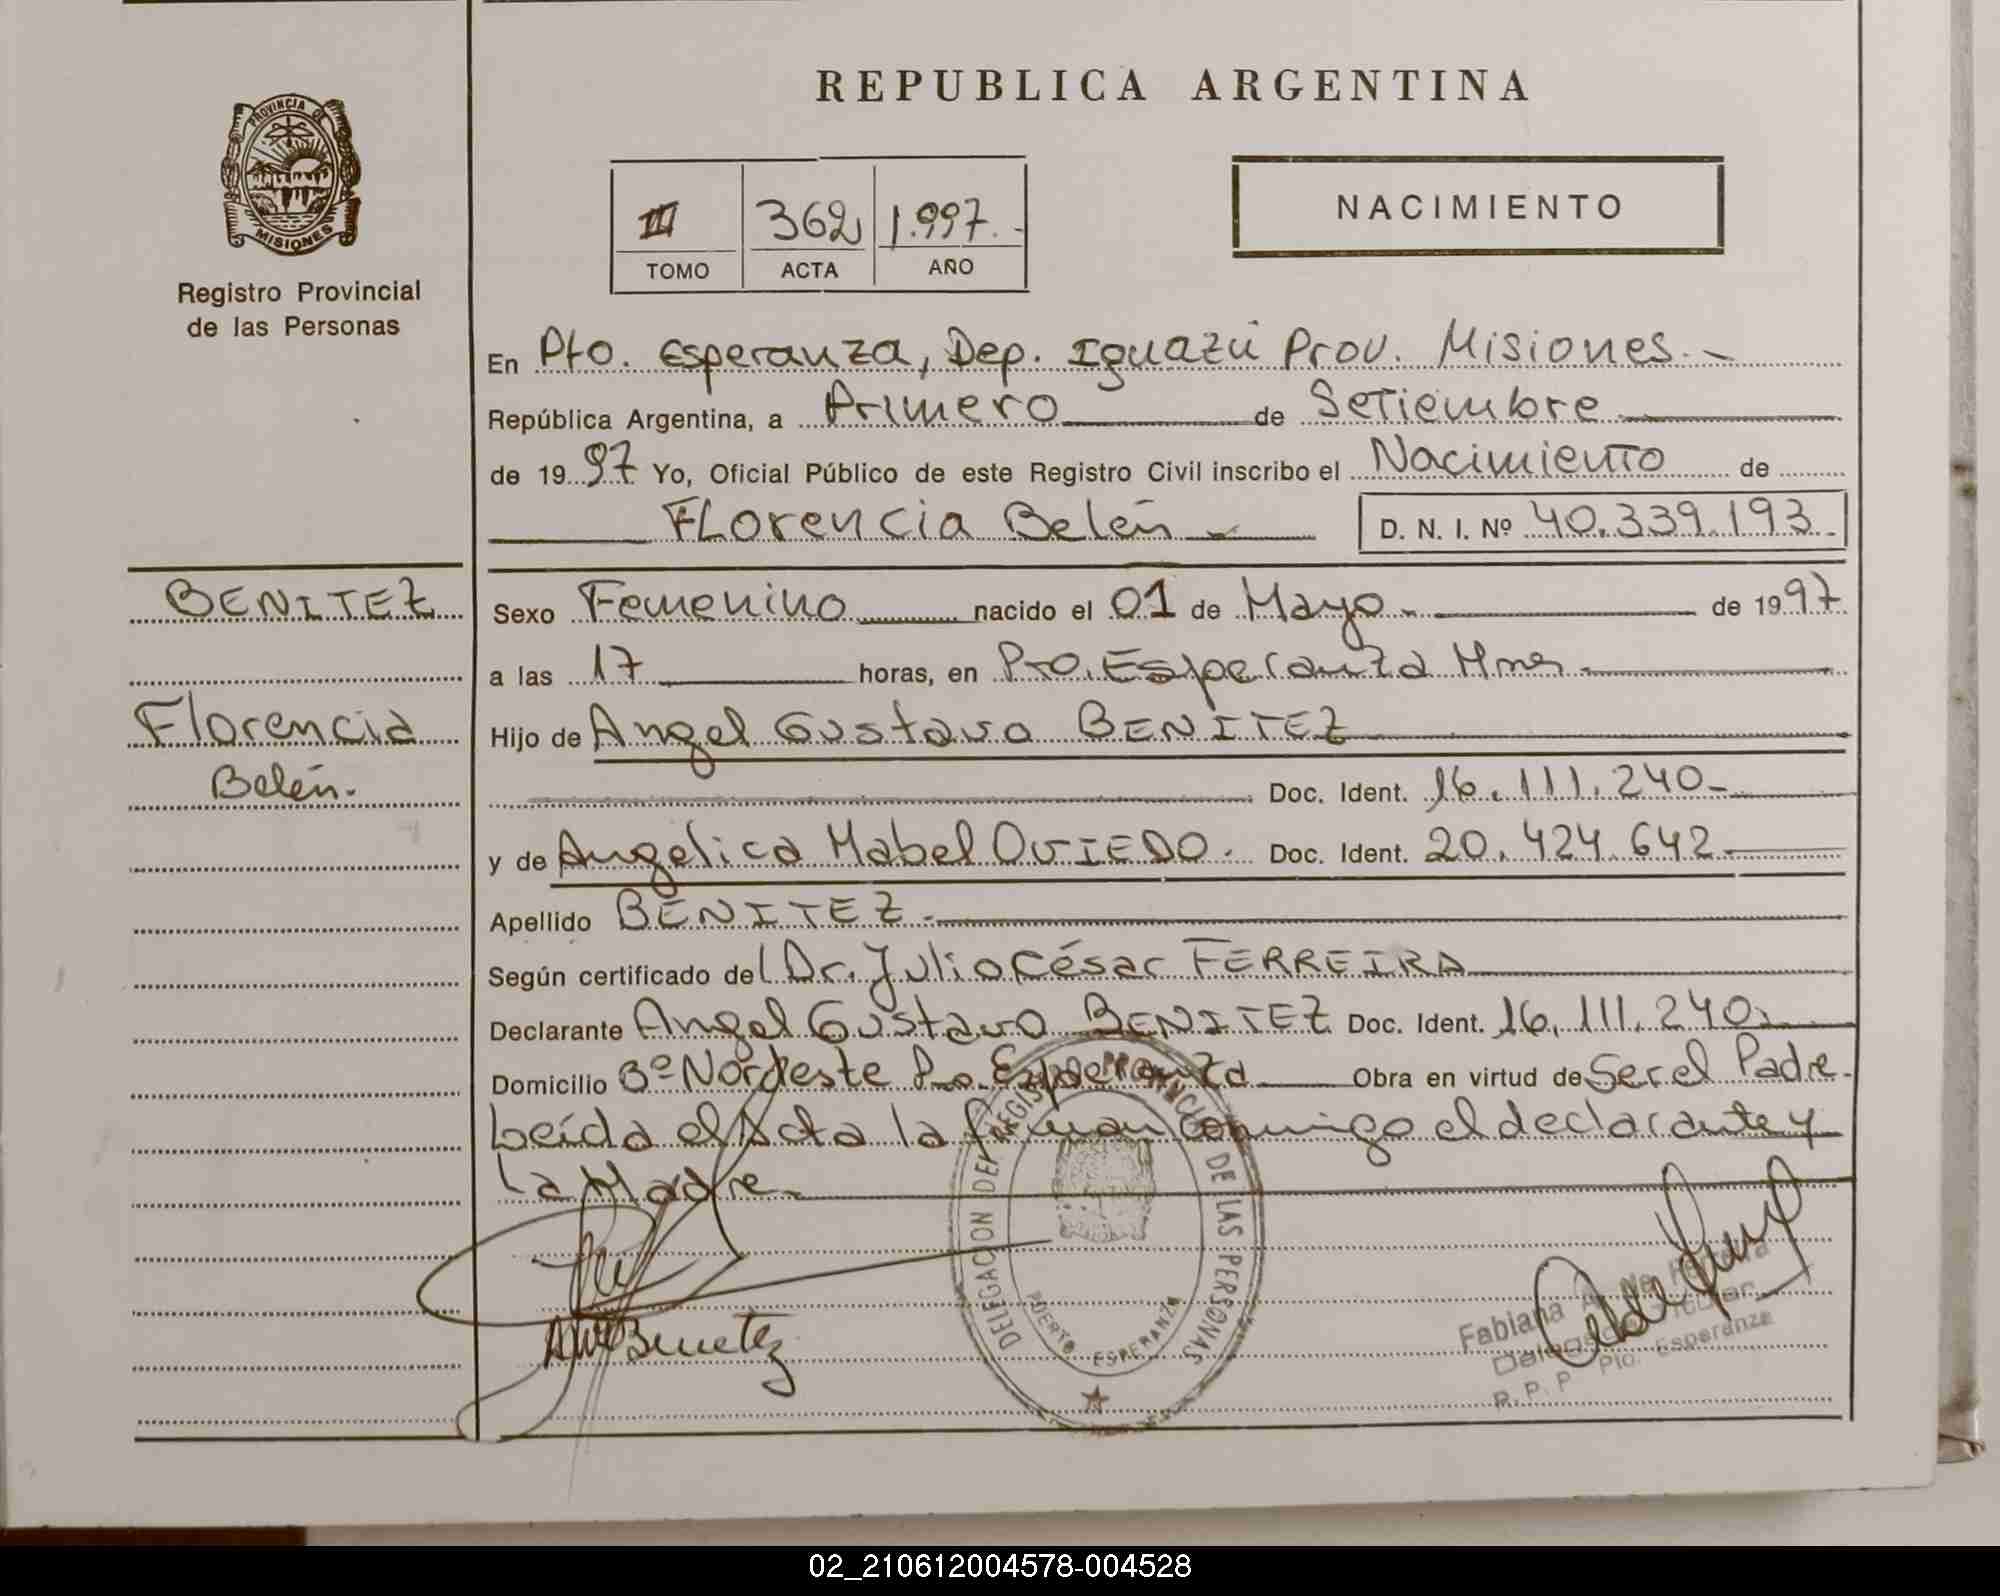 REPUBLICA ARGENTINA
PROVINCIA DE
MISIONES
Registro Provincial
de las Personas
III 362 1.997.-
TOMO ACTA AÑO
NACIMIENTO
En Pto. Esperanza, Dep. Iguazú Prov. Misiones.-
República Argentina, a Primero de Setiembre
de 1997 Yo, Oficial Público de este Registro Civil inscribo el Nacimiento de
Florencia Belén D. N. I. Nº 40.339.193.
BENITEZ
Florencia
Belén.
Sexo Femenino nacido el 01 de Mayo. de 1997
a las 17 horas, en Pto. Esperanza Mnes.
Hijo de Angel Gustavo BENITEZ
Doc. Ident. 16.111.240-
y de Angelica Mabel OVIEDO. Doc. Ident. 20.424.642.
Apellido BENITEZ.
Según certificado del Dr. Julio César FERREIRA
Declarante Angel Gustavo BENITEZ Doc. Ident. 16.111.240.
Domicilio Bº Nordeste Pto Esperanza Obra en virtud de Ser el Padre.
Leída el Acta la firman conmigo el declarante y
La Madre.
DELEGACION DEL REGISTRO PROVINCIAL DE LAS PERSONAS
PUERTO ESPERANZA
Benitez
Fabiana
Titular
R. P. P Pto. Esperanza
02_210612004578-004528